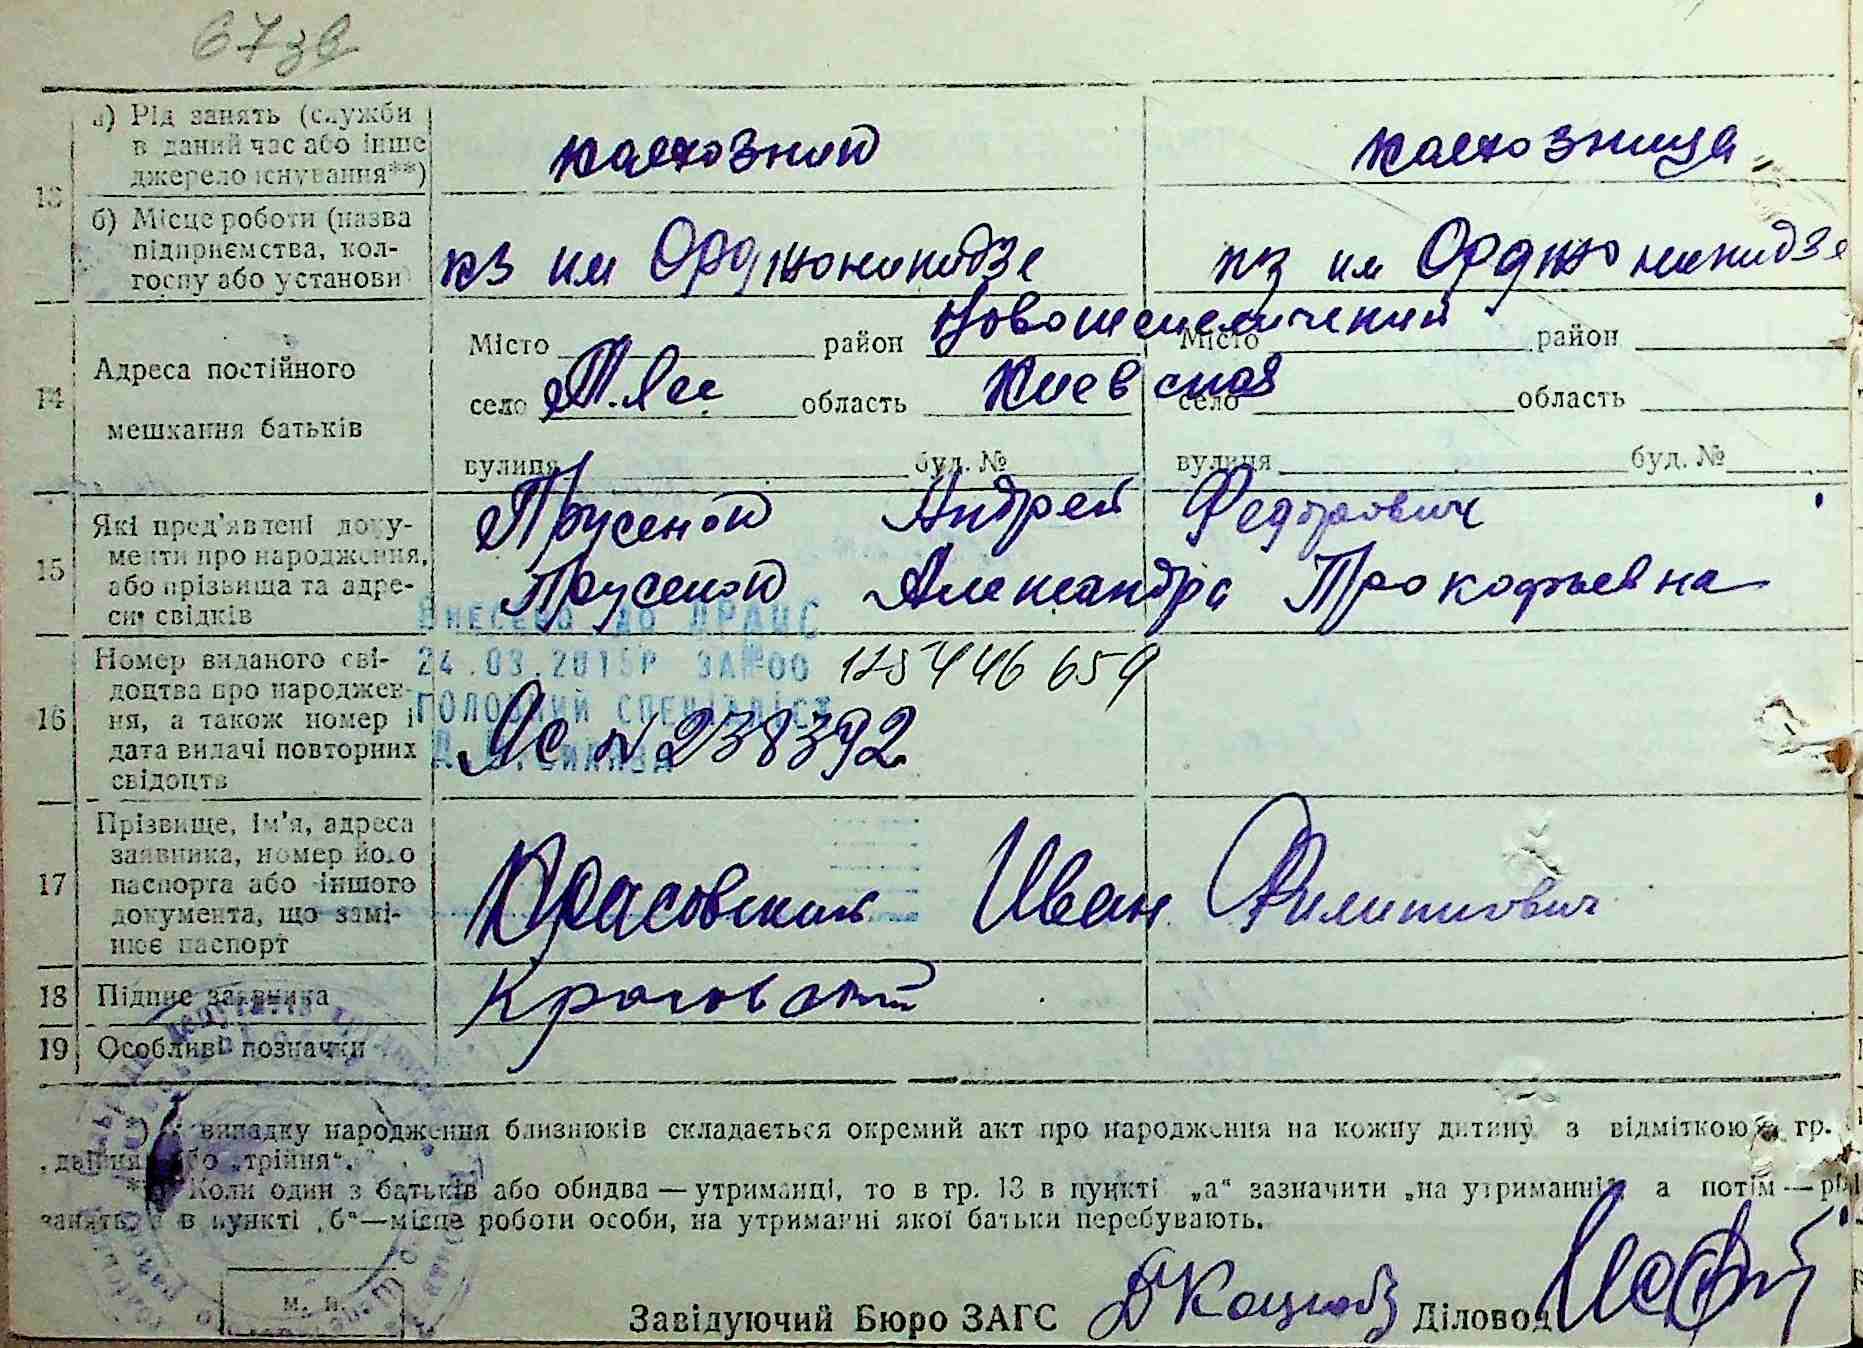 67зв
а) Рід занять (служби в даний час або інше джерело існування**)
колхозник
колхозница
13
б) Місце роботи (назва підприємства, колгоспу або установи
кз им Орджоникидзе
кз им Орджоникидзе
14
Адреса постійного мешкання батьків
Місто район Новошепеличский Місто район
село область Киевская село область
вулиця буд. № вулиця буд. №
15
Які пред'явлені документи про народження, або прізвища та адреси свідків
Прусенок Андрей Федорович
Прусенок Александра Прокофьевна
Внесено до ДРАЦС
24.03.2015р за №00 125446659
Головний спеціаліст
16
Номер виданого свідоцтва про народження, а також номер і дата видачі повторних свідоцтв
ЯС № 238392
17
Прізвище, ім'я, адреса заявника, номер його паспорта або іншого документа, що замінює паспорт
Красовский Иван Филиппович
18 Підпис заявника
Красовский
19 Особливі позначки
випадку народження близнюків складається окремий акт про народження на кожну дитину з відміткою в гр.
„двійня" або „трійня".
** Коли один з батьків або обидва — утриманці, то в гр. 13 в пункті „а" зазначити „на утриманні", а потім — рід
занять, а в пункті „б" — місце роботи особи, на утриманні якої батьки перебувають.
м. п.
Завідуючий Бюро ЗАГС Діловод